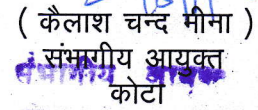 ( कैलाश चन्द मीना )
संभागीय आयुक्त
कोटा